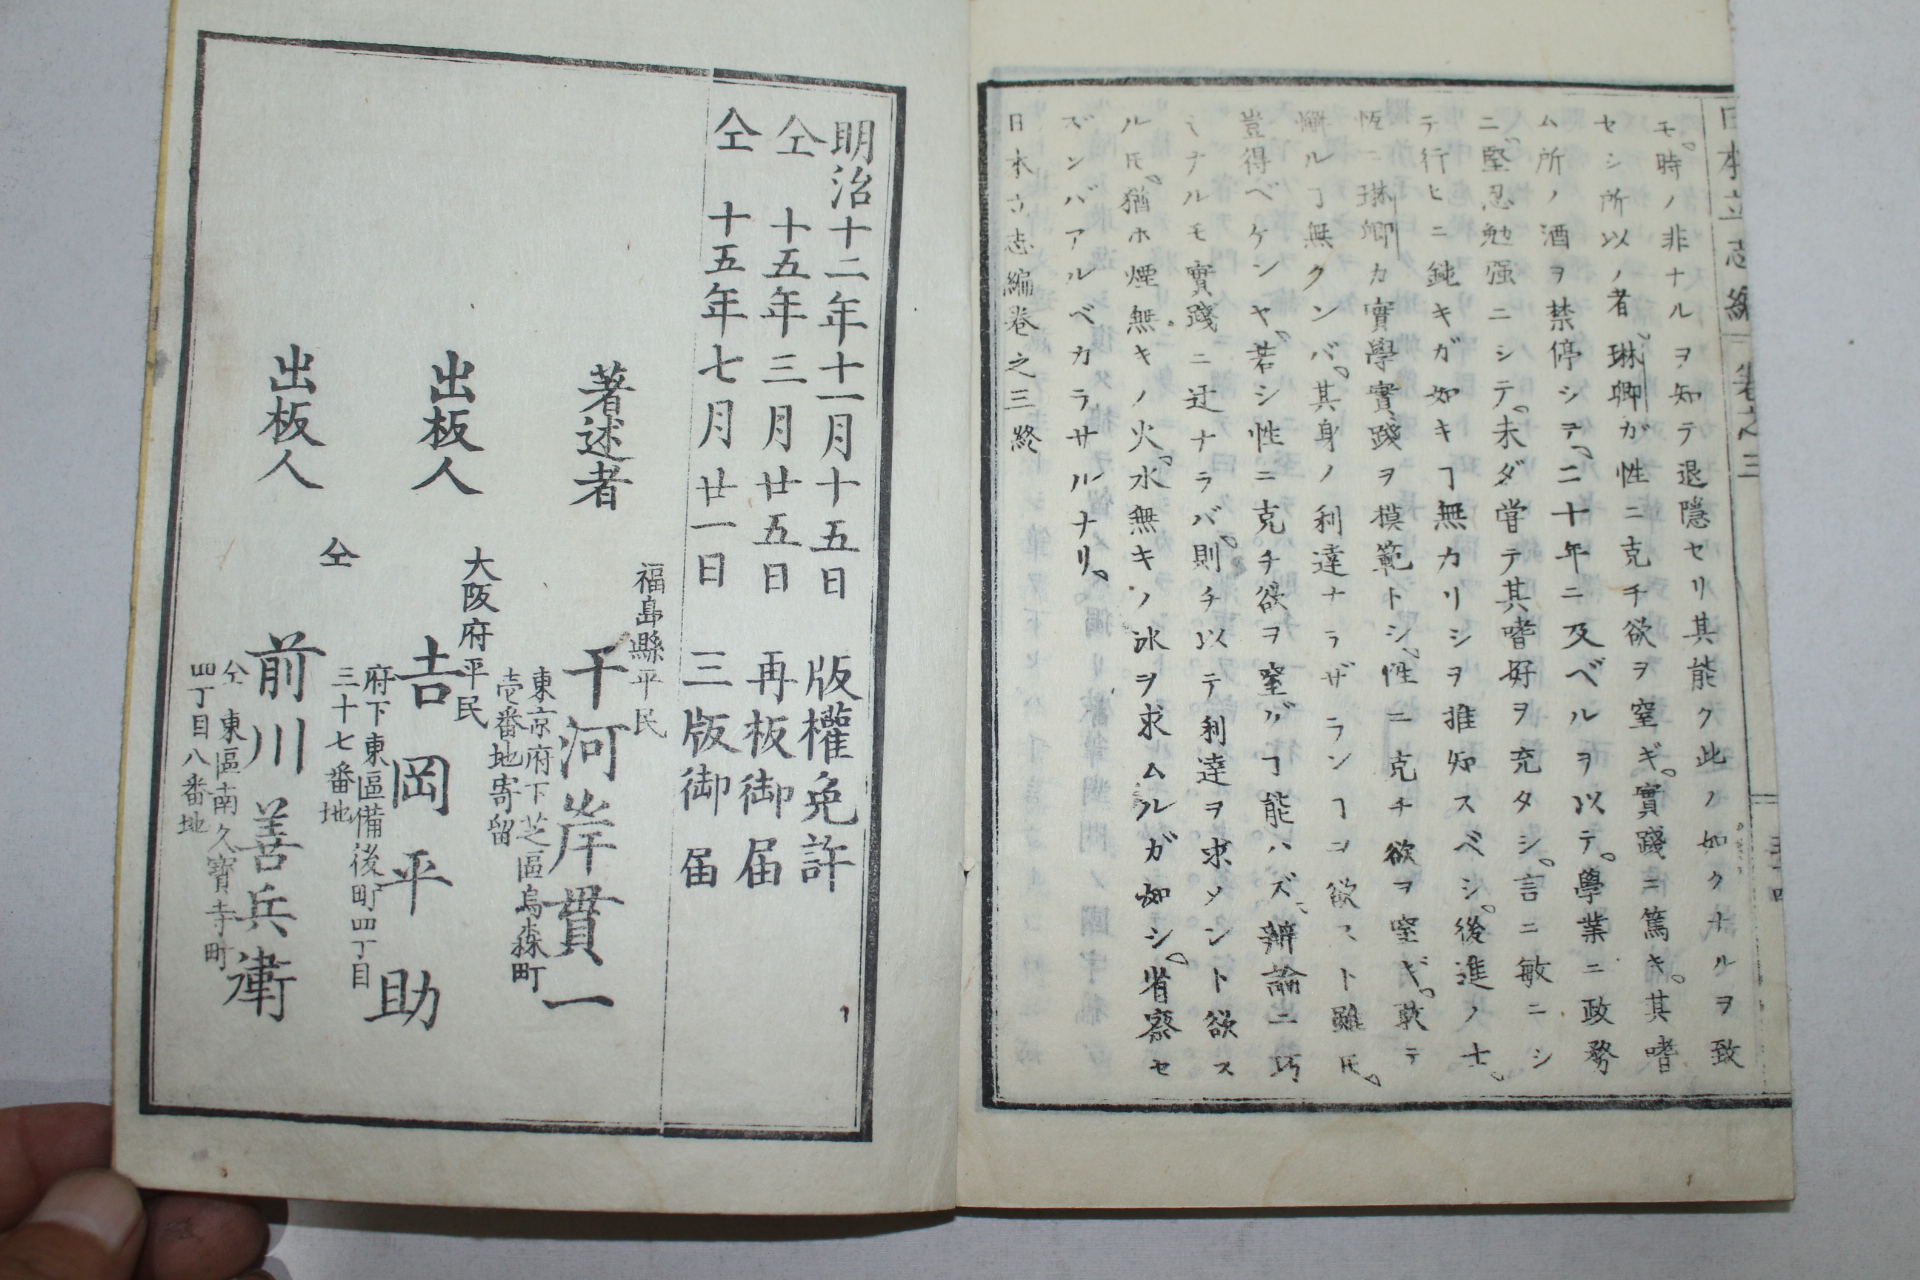 日本立志編 卷之三
モ、時ノ非ナルヲ知テ退隱セリ其能ク此ノ如クナルヲ致
セシ所以ノ者、琳卿ガ性ニ克チ欲ヲ窒ギ、實踐ニ篤キ、其嗜
ム所ノ酒ヲ禁停シテ、二十年ニ及ベルヲ以テ、學業ニ政務
ニ、堅忍勉强ニシテ、未ダ甞テ其嗜好ヲ充タシ、言ニ敏ニシ
テ行ヒニ鈍キガ如キヿ無カリシヲ推知スベシ、後進ノ士、
恆ニ琳卿カ實學實踐ヲ模範トシ、性ニ克チ欲ヲ窒ギ、敢テ
懈ルヿ無クンバ、其身ノ利達ナラザランヿヲ欲スト雖𪜈、
豈得ベケンヤ、若シ性ニ克チ欲ヲ窒ガヿ能ハズ、辨論ニ巧
ミナルモ實踐ニ迂ナラバ、則チ以テ利達ヲ求メント欲ス
ル𪜈、猶ホ煙無キノ火、水無キノ氷ヲ求ムルガ如シ、省察セ
ズンバアルベカラサルナリ、
日本立志編卷之三終
明治十二年十一月十五日 版權免許
仝 十五年三月廿五日 再板御届
仝 十五年七月廿一日 三版御届
著述者
福島縣平民
干河岸貫一
東京府下芝區烏森町
壱番地寄留
出板人
大阪府平民
吉岡平助
府下東區備後町四丁目
三十七番地
出板人
仝
前川善兵衞
仝 東區南久寶寺町
四丁目八番地